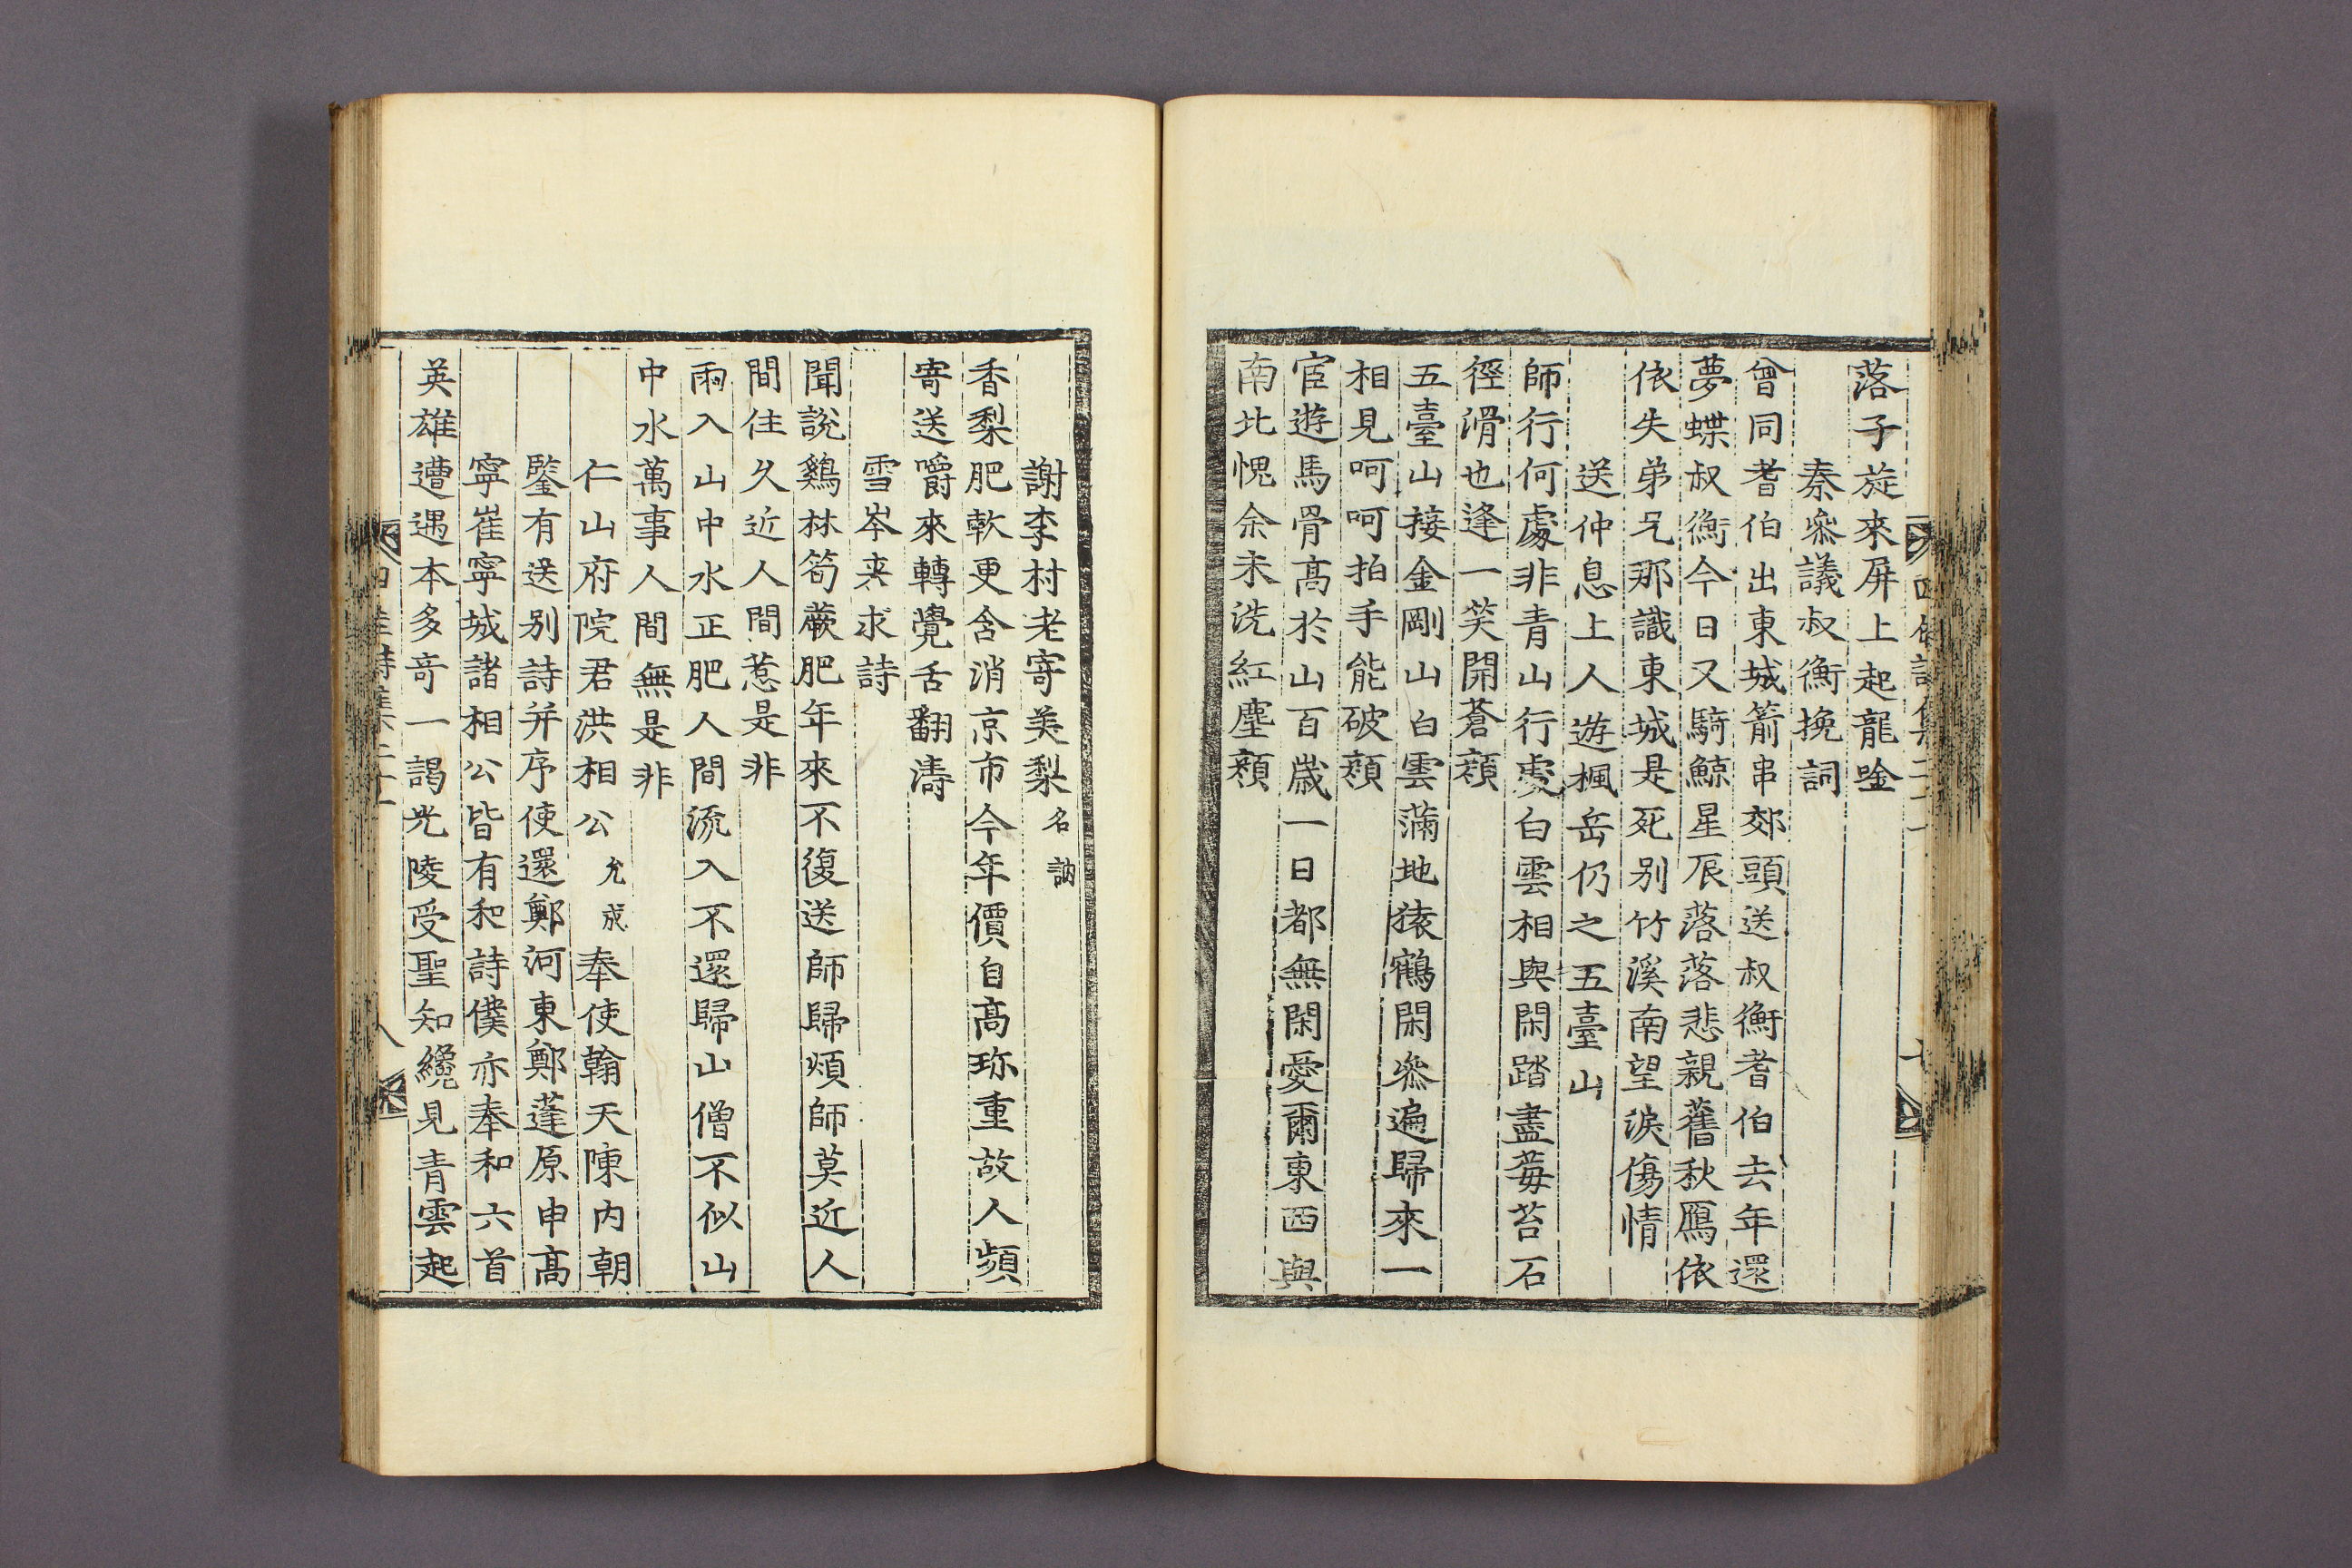 落子旋來屏上起龍唫
秦叅議叔衡挽詞
曾同耆伯出東城箭串郊頭送叔衡耆伯去年還
夢蝶叔衡今日又騎鯨星辰落落悲親舊秋鴈依
依失弟兄那識東城是死别竹溪南望淚傷情
送仲息上人遊楓岳仍之五臺山
師行何處非青山行處白雲相與閑踏盡莓苔石
徑滑也逢一笑開蒼顔
五臺山接金剛山白雲滿地猿鶴閑叅遍歸來一
相見呵呵拍手能破顔
宦遊馬骨高於山百歲一日都無閑愛爾東西與
南北愧余未洗紅塵顔
謝李村老寄美梨名訥
香梨肥軟更含消京市今年價自高珎重故人頻
寄送嚼來轉覺舌翻濤
雪岑來求詩
聞說鷄林筍蕨肥年來不復送師歸煩師莫近人
間住久近人間惹是非
雨入山中水正肥人間流入不還歸山僧不似山
中水萬事人間無是非
仁山府院君洪相公允成奉使翰天陳内朝
鑒有送别詩并序使還鄭河東鄭蓬原申高
寧崔寧城諸相公皆有和詩僕亦奉和六首
英雄遭遇本多竒一謁光陵受聖知纔見青雲起
八